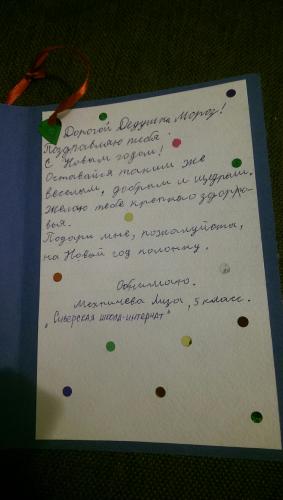 Дорогой Дедушка Мороз!
Поздравляю тебя
с Новым годом!
Оставайся таким же
веселым, добрым и щедрым.
Желаю тебе крепкого здоро-
вья.
Подари мне, пожалуйста,
на Новый год колонку.
Обнимаю.
Лиза, 5 класс.
"Сиверская школа-интернат"